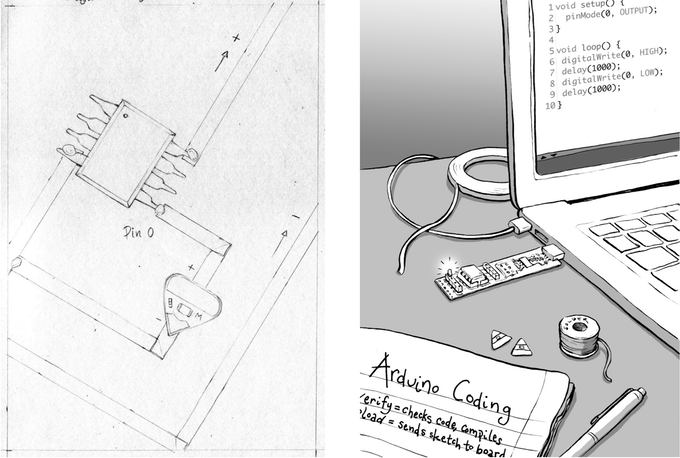 +
-
Pin 0
+
-
M
1 void setup() {
2 pinMode(0, OUTPUT);
3 }
4
5 void loop() {
6 digitalWrite(0, HIGH);
7 delay(1000);
8 digitalWrite(0, LOW);
9 delay(1000);
10 }
SOLDER
Arduino Coding
erify = checks code compiles
pload = sends sketch to board